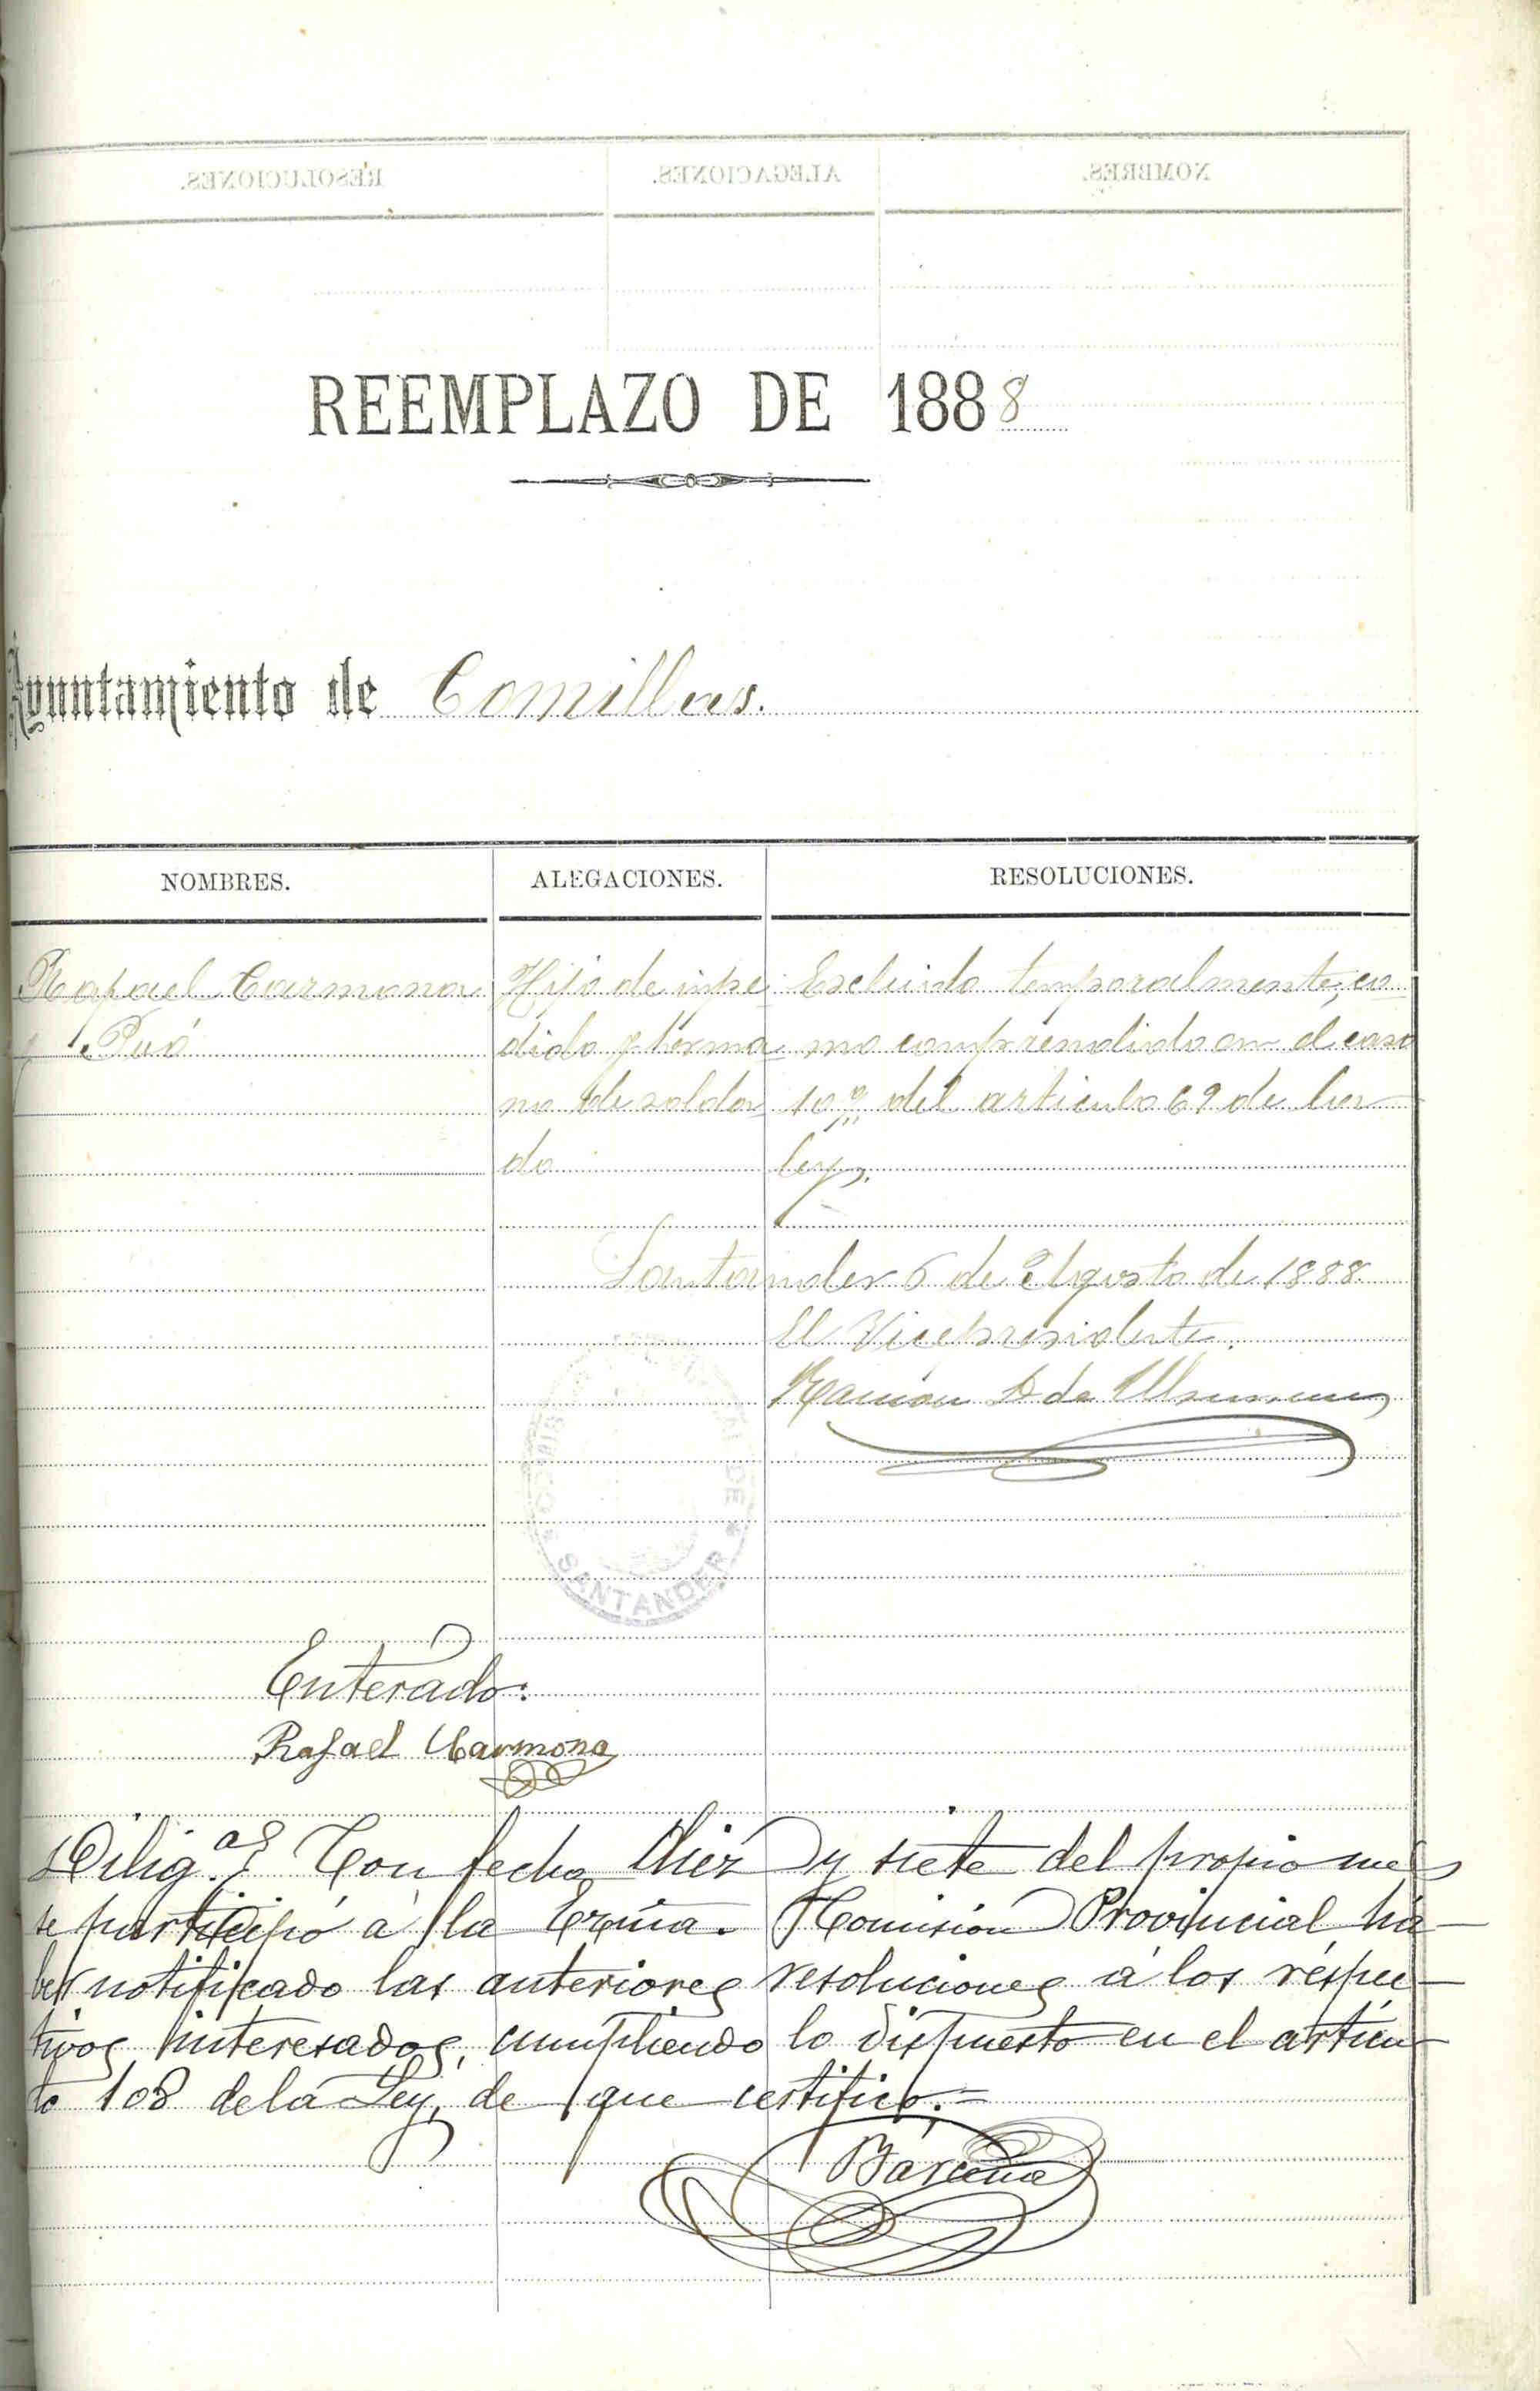 REEMPLAZO DE 1888
Ayuntamiento de Comillas.
NOMBRES. ALEGACIONES. RESOLUCIONES.
Rafael Carmona Hijo de impe Escluido temporalmente, co
y Puó dido y herma mo comprendido en el caso
no de solda 10º del articulo 69 de la
do ley.
Santander 6 de Agosto de 1888
El Vicepresidente.
Ramon D de
SANTANDER
Enterado:
Rafael Carmona
Dilig.as Con fecha diez y siete del propio mes
se participó á la Excma. Comision Provincial ha
ber notificado las anteriores resoluciones á los respec
tivos interesados, cumpliendo lo dispuesto en el artícu
lo 108 de la Ley, de que certifico.=
Bárcena